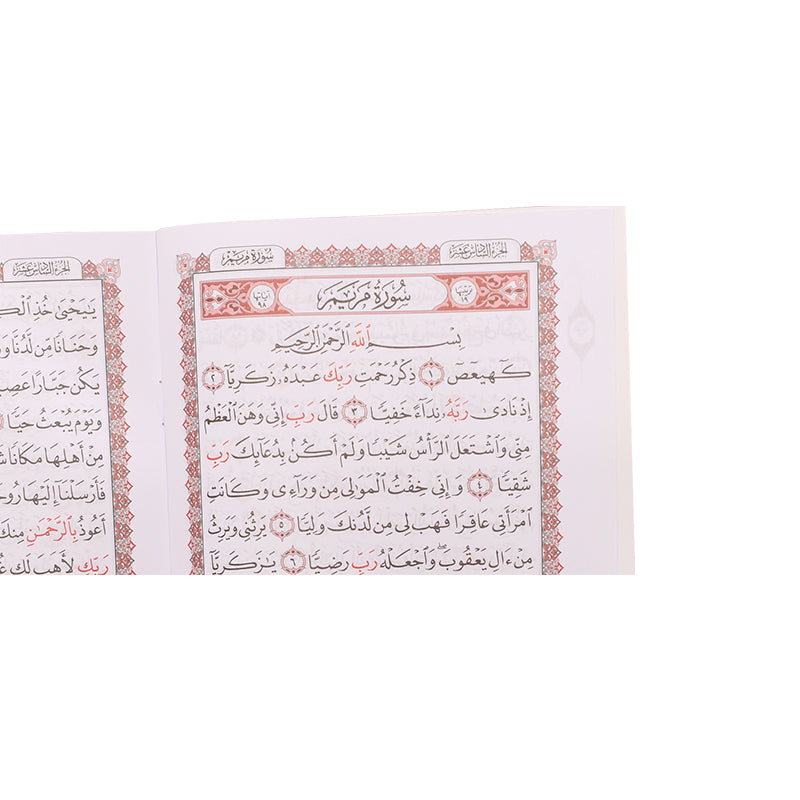 الجزء السادس عشر
سورة مريم
ترتيبها ١٩
سُورَةُ مَرْيَمَ
آياتها ٩٨
بِسْمِ ٱللَّهِ ٱلرَّحْمَٰنِ ٱلرَّحِيمِ
كٓهيعٓصٓ ١ ذِكْرُ رَحْمَتِ رَبِّكَ عَبْدَهُۥ زَكَرِيَّآ ٢
إِذْ نَادَىٰ رَبَّهُۥ نِدَآءً خَفِيًّا ٣ قَالَ رَبِّ إِنِّى وَهَنَ ٱلْعَظْمُ
مِنِّى وَٱشْتَعَلَ ٱلرَّأْسُ شَيْبًا وَلَمْ أَكُنۢ بِدُعَآئِكَ رَبِّ
شَقِيًّا ٤ وَإِنِّى خِفْتُ ٱلْمَوَٰلِىَ مِن وَرَآءِى وَكَانَتِ
ٱمْرَأَتِى عَاقِرًا فَهَبْ لِى مِن لَّدُنكَ وَلِيًّا ٥ يَرِثُنِى وَيَرِثُ
مِنْ ءَالِ يَعْقُوبَ ۖ وَٱجْعَلْهُ رَبِّ رَضِيًّا ٦ يَٰزَكَرِيَّآ
الجزء السادس عشر
يَٰيَحْيَىٰ خُذِ
وَحَنَانًا مِّن لَّدُنَّا
يَكُن جَبَّارًا
وَيَوْمَ يُبْعَثُ حَيًّا
مِنْ أَهْلِهَا مَكَانًا
فَأَرْسَلْنَآ إِلَيْهَا
أَعُوذُ بِٱلرَّحْمَٰنِ مِنكَ
رَبِّكِ لِأَهَبَ لَكِ